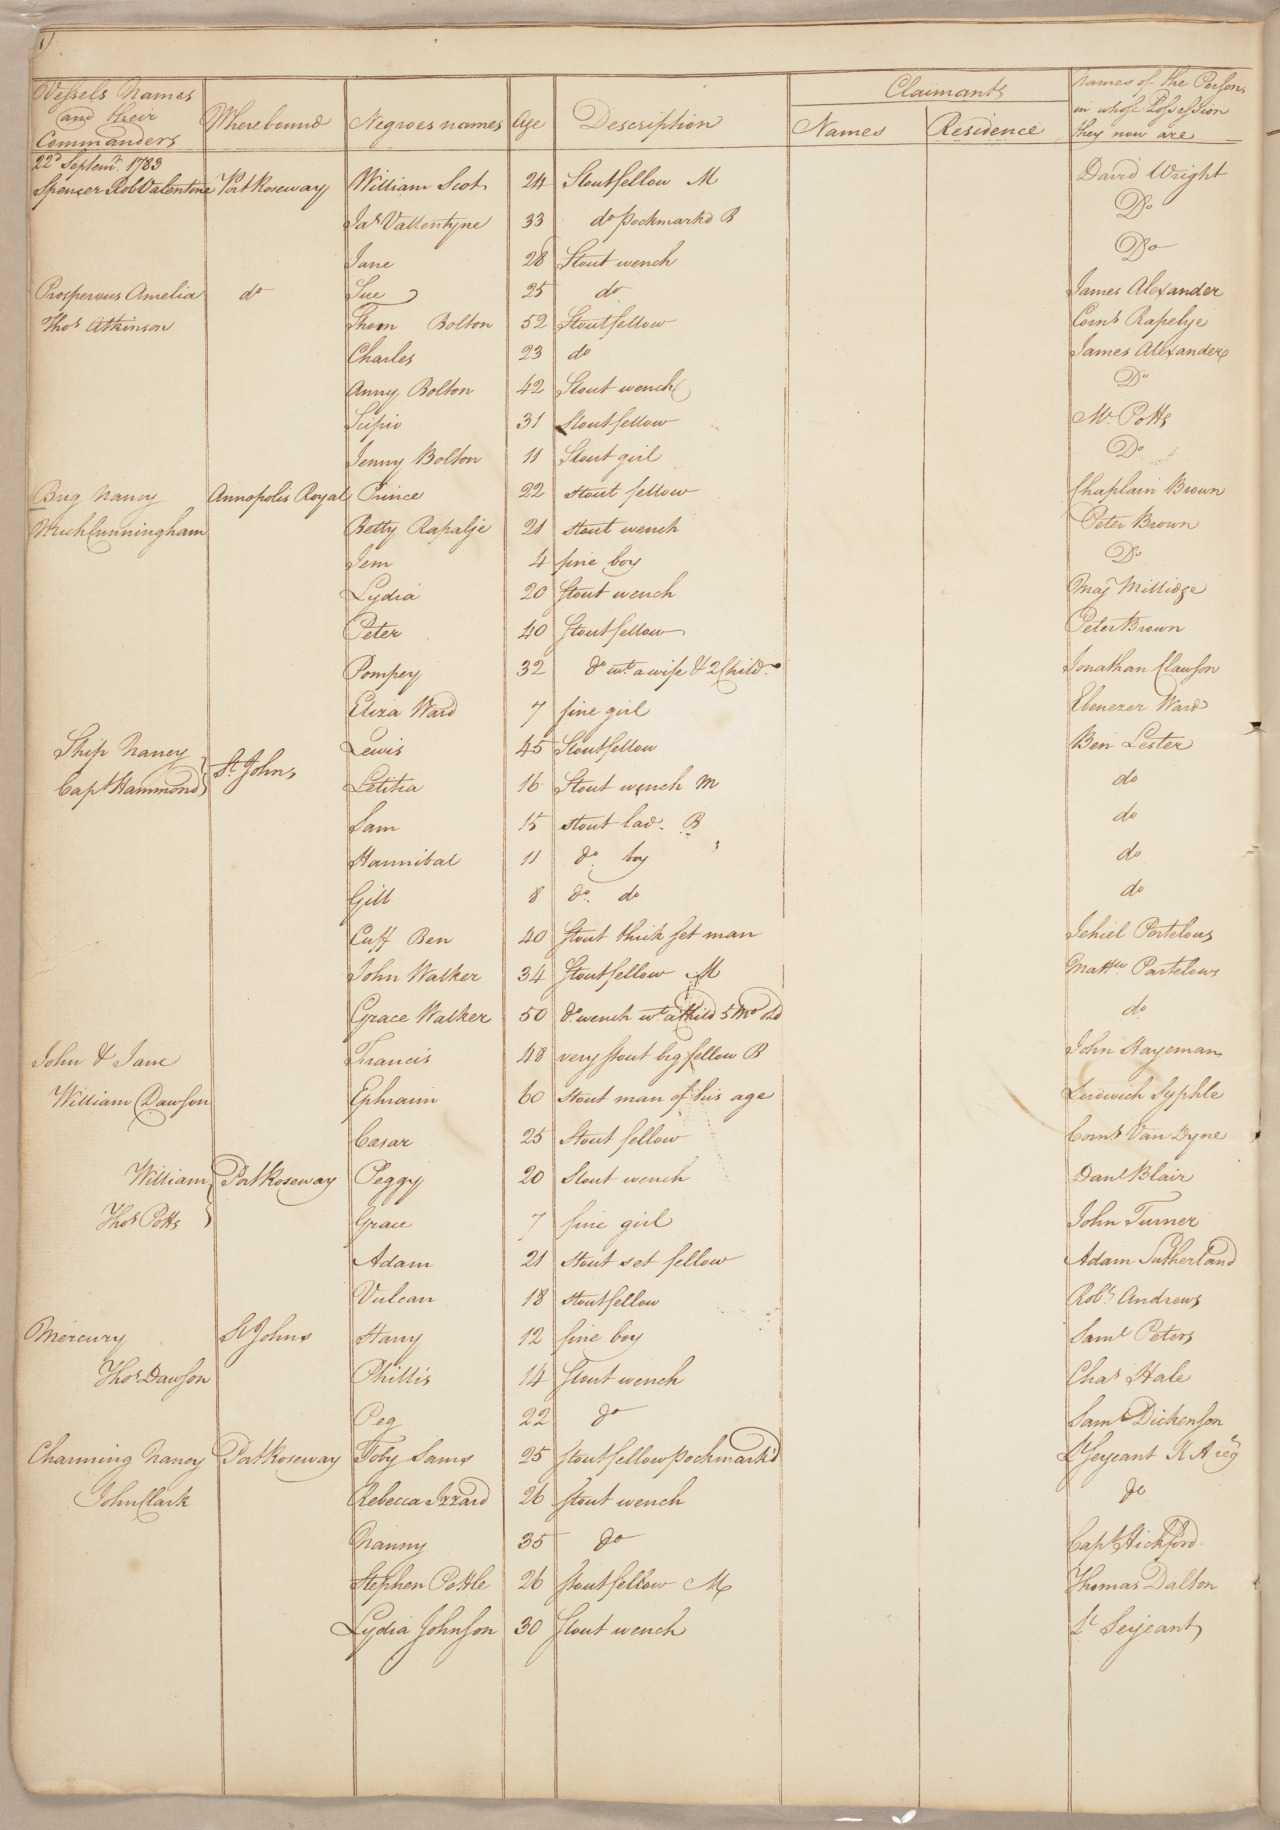 Vessels Names and their Commanders Wherebound Negroes names Age Description Claimants Names Residence Names of the Persons in whose Possession they now are
22d Septemr. 1783
Spencer Rob Valentine Port Roseway William Scot 24 Stout fellow M David Wright
Jas Vallentyne 33 do pockmarkd B Do
Jane 28 Stout wench Do
Prosperous Amelia do Sue 25 do James Alexander
Thos Atkinson Thom Bolton 52 Stout fellow Corns Rapelye
Charles 23 do James Alexander
Anny Bolton 42 Stout wench Do
Scipio 31 Stout fellow Mr. Potts
Jenny Bolton 11 Stout girl Do
Brig Nancy Annopolis Royal Prince 22 stout fellow Chaplain Brown
Mich Cunningham Betty Rapalje 21 stout wench Peter Brown
Jem 4 fine boy Do
Lydia 20 Stout wench Majr Millidge
Peter 40 Stout fellow Peter Brown
Pompey 32 do wt. a wife & 2 Childn. Jonathan Clawson
Eliza Ward 7 fine girl Ebenezer Ward
Ship Nancy St. Johns Lewis 45 Stout fellow Ben Lester
Capt Hammond Letitia 16 Stout wench M do
Sam 15 stout lad. B do
Hannibal 11 do. boy do
Gill 8 do. do do
Cuff Ben 40 Stout thick set man Jehiel Partelous
John Walker 34 Stout fellow M Matthw Partelows
Grace Walker 50 do. wench wt. a Child 5 Mo old do
John & Jane Francis 48 very stout big fellow B John Hayeman
William Dawson Ephraim 60 stout man of his age Ludwich Syphle
Cæsar 25 Stout fellow Corns Van Dyne
William Port Roseway Peggy 20 Stout wench Danl Blair
Thos Potts Grace 7 fine girl John Turner
Adam 21 stout set fellow Adam Sutherland
Vulcan 18 stout fellow Robt. Andrews
Mercury St Johns Harry 12 fine boy Saml Peters
Thos Dawson Phillis 14 Stout wench Chas Hale
Peg 22 do Saml Dickenson
Charming Nancy Port Roseway Toby Sams 25 Stout fellow pockmarkd Lt Serjeant R A regt
John Clark Rebecca Izzard 26 stout wench do
Nanny 35 do Capt. Hickford
Stephen Pottle 26 stout fellow M Thomas Dalton
Lydia Johnson 30 Stout wench Lt Serjeant